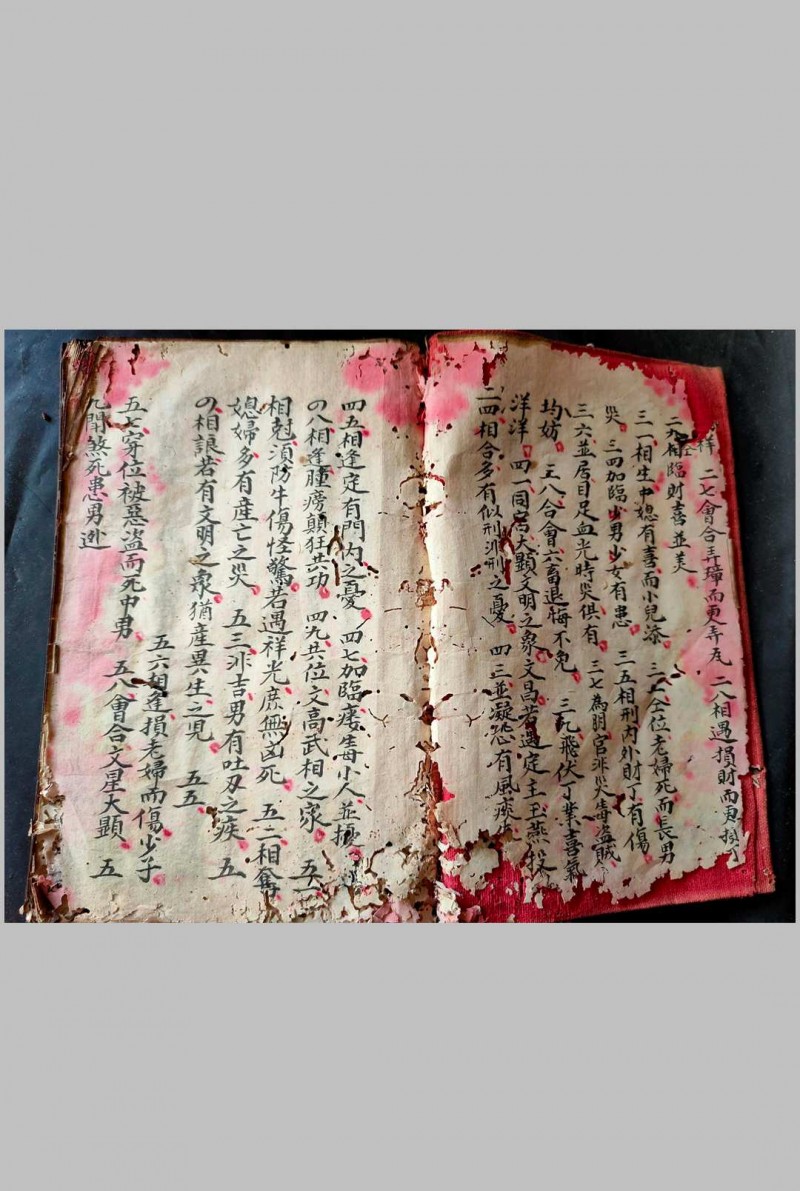 祥 二七會合弄璋而更弄瓦 二八相遇損財而更損丁
二九相臨財喜並美
三一相生中媳有喜而小兒添 三二合位老婦死而長男
災 三四加臨少男少女有患 三五相刑内外財丁有傷
三六並居目足血光時災俱有 三七為朋官非災毒盜賊
均妨 三八合會六畜退悔不免 三九飛伏丁業喜氣
洋洋 四一同宮大顯文明之象文昌若遇定主玉燕投
二四相合多有似刑非刑之憂 四三並凝恐有風痰
四五相逢定有門内之憂 四七加臨瘘毒小人並擾
の八相逢腫痨顛狂共功 四九共位文高武相之家 五一
相尅須防牛傷怪驚若遇祥光庶無凶死 五二相奪
媳婦多有產亡之災 五三非吉男有吐刄之疾 五
の相諒若有文明之象猶産異生之児 五五
五六相逢損老婦而傷少子
五七穿位被惡盜而死中男 五八會合文星大顯 五
九閗煞死患男迯